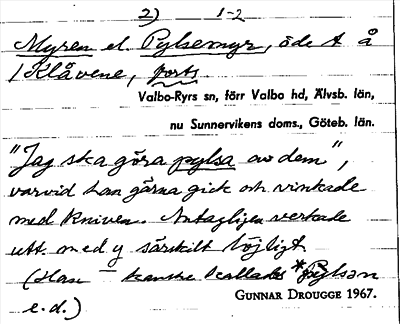 2) 1-2
Myren el. Pylsemyr, öde t å
1 Klåvene, forts.
Valbo-Ryrs sn, förr Valbo hd, Älvsb. län,
nu Sunnervikens doms., Göteb. län.
"Jag ska göra pylsa av dem",
varvid han gärna gick och vinkade
med kniven. Antagligen verkade
utt. med y särskilt löjligt.
(Han kanske kallades *Pylsan
e.d.)
GUNNAR DROUGGE 1967.